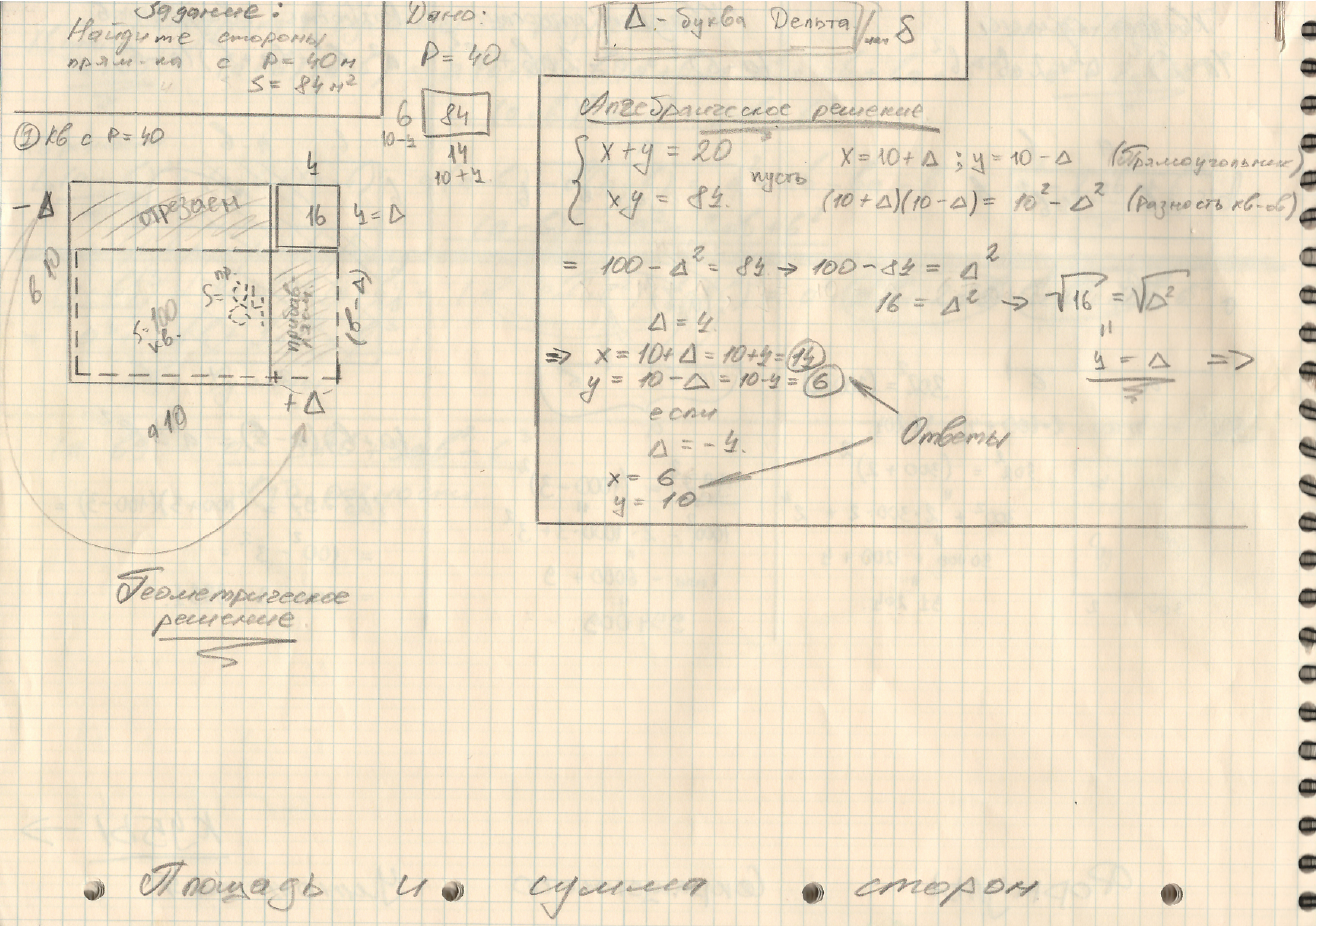 Задание:
Найдите стороны
прям-ка с P = 40м
S = 84 м²
Дано:
P = 40
6 84
10-4
14
10+4
Δ - буква Дельта / δ
① Кв с P = 40
4
-Δ отрезаем 16 4 = Δ
10
6
S=100
кв.
S=
пр.
(б-Δ)
+Δ
а 10
Геометрическое
решение
Алгебраическое решение
x + y = 20 пусть x = 10 + Δ ; y = 10 - Δ (Прямоугольник)
xy = 84. (10 + Δ)(10 - Δ) = 10² - Δ² (Разность кв-ов)
= 100 - Δ² = 84 → 100 - 84 = Δ²
16 = Δ² → √16 = √Δ²
Δ = 4. "
=> x = 10 + Δ = 10 + 4 = 14 4 = Δ =>
y = 10 - Δ = 10 - 4 = 6
если
Δ = - 4.
Ответы
x = 6
y = 10
Площадь и сумма сторон